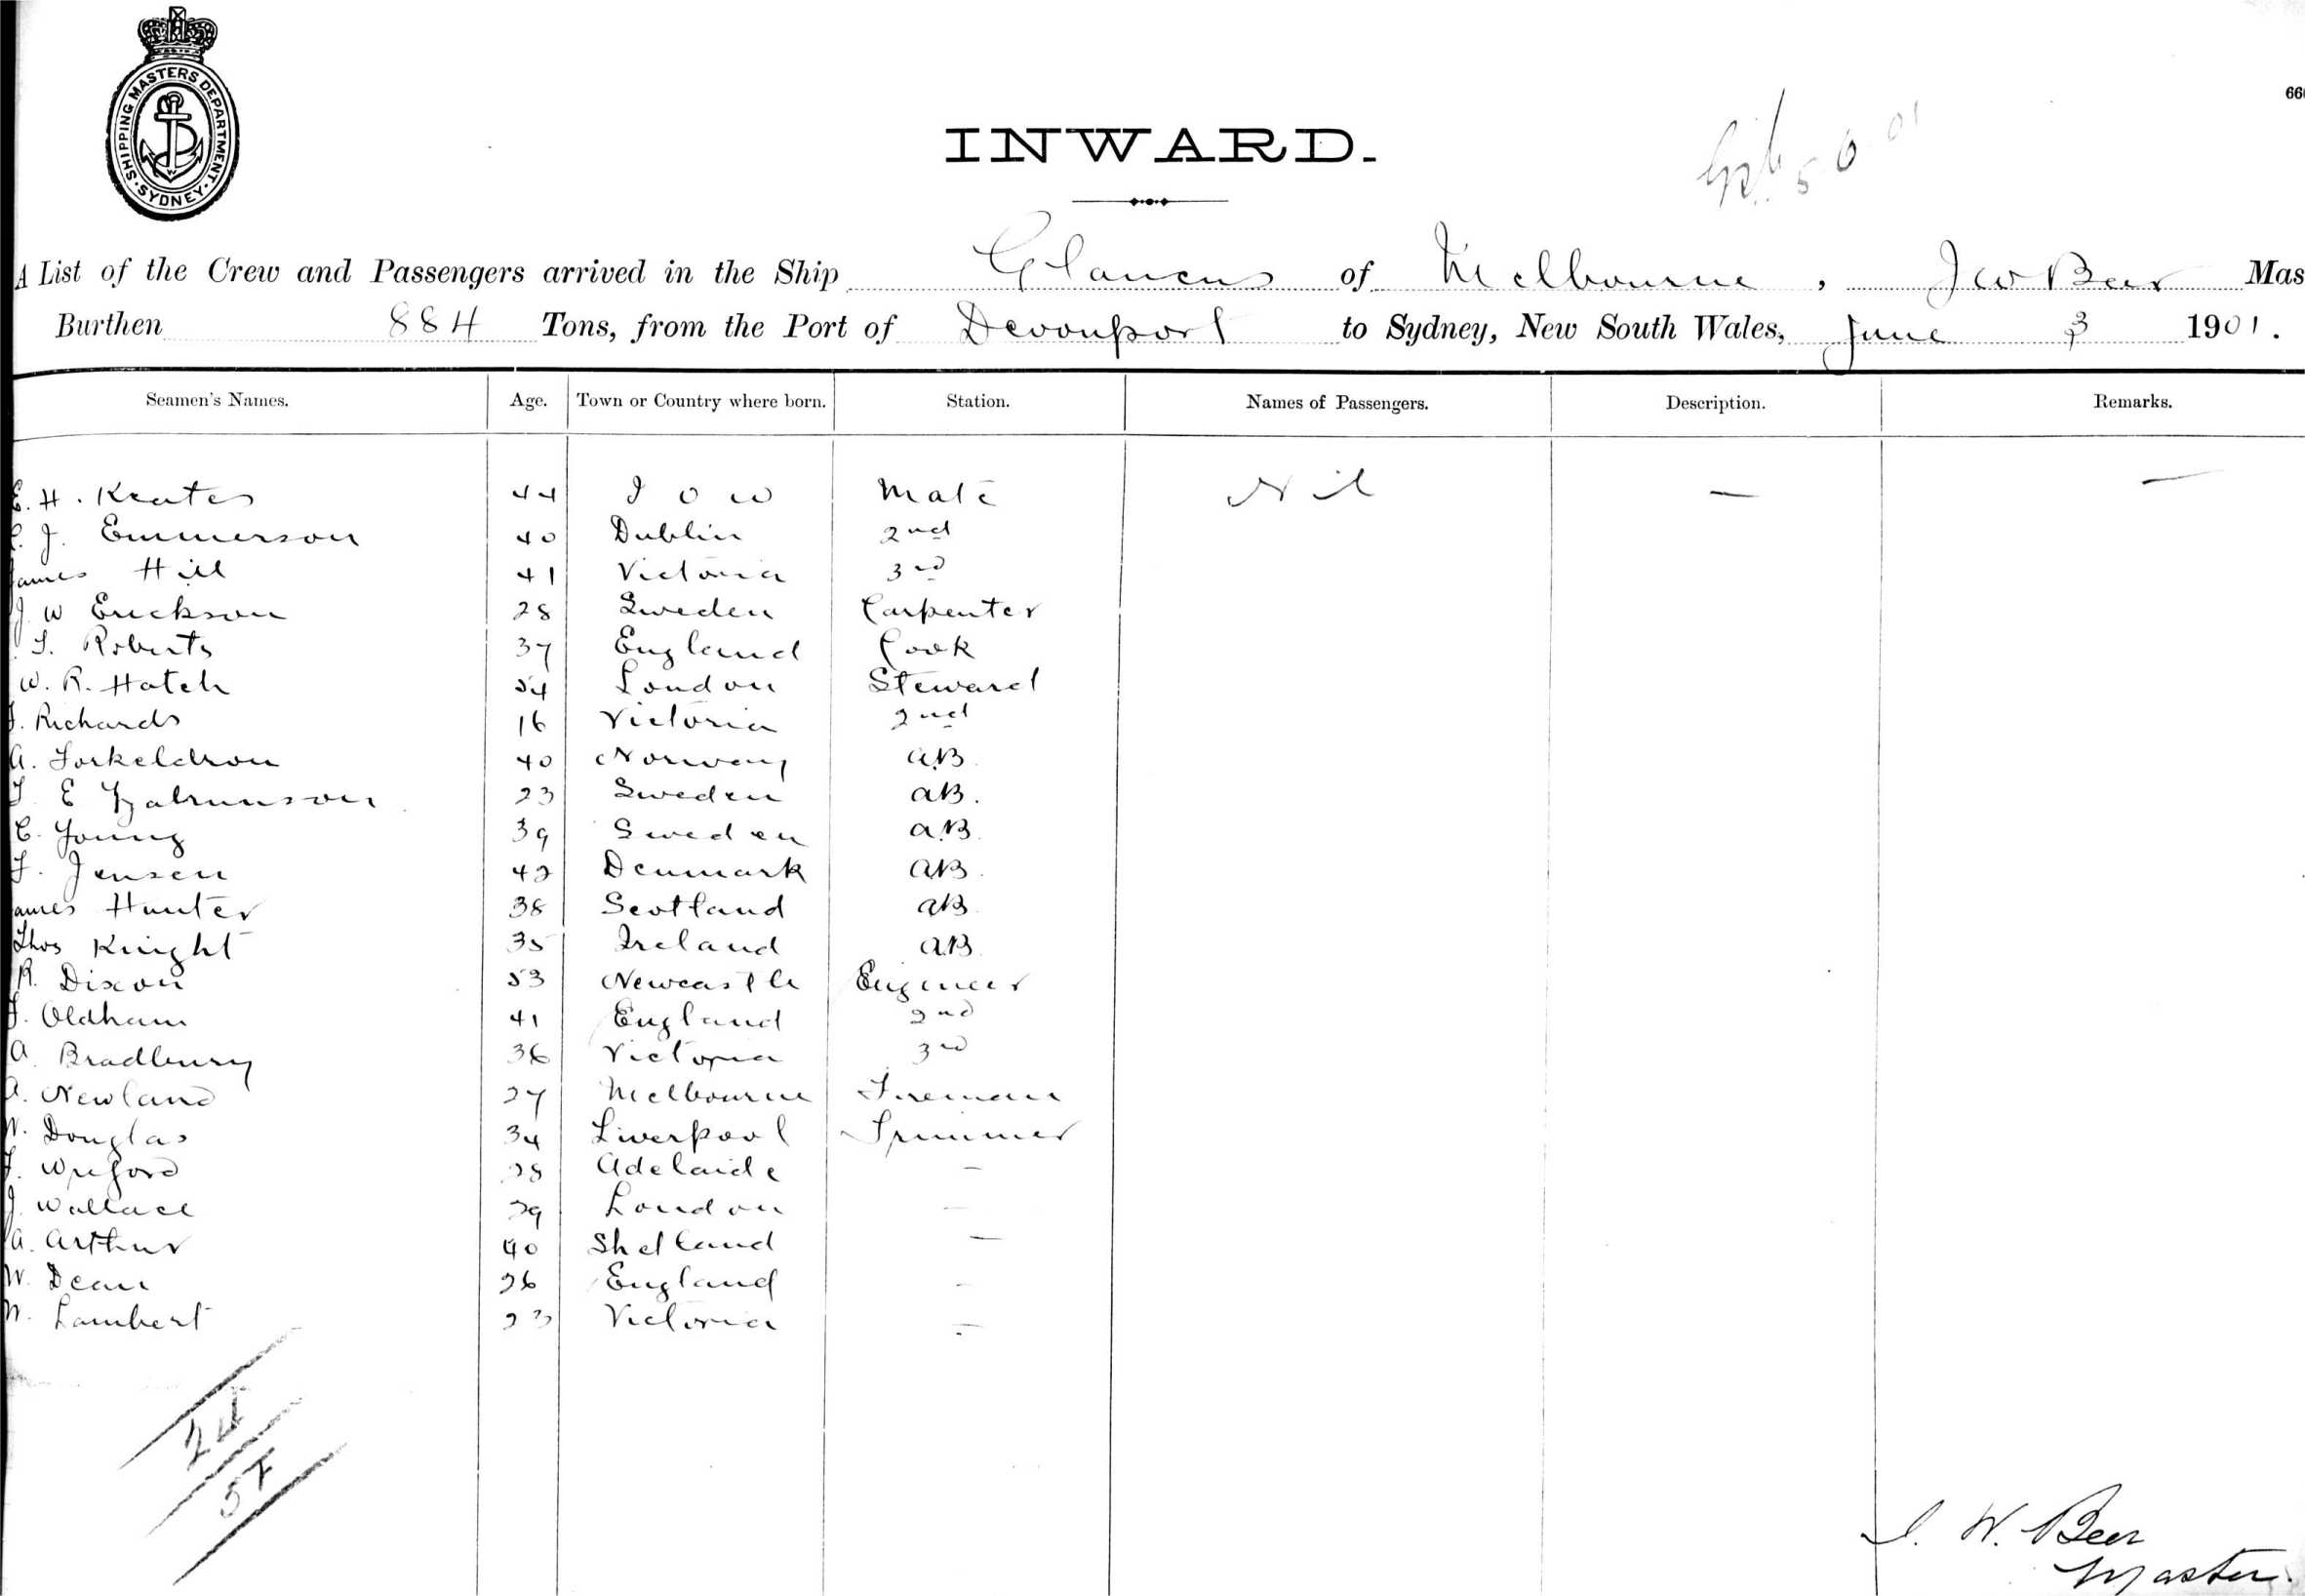 SHIPPING MASTERS DEPARTMENT · SYDNEY ·
66
INWARD.
5 6 01
A List of the Crew and Passengers arrived in the Ship Glaucus of Melbourne, J W Beer Mas
Burthen 884 Tons, from the Port of Devonport to Sydney, New South Wales, June 3 1901.
Seamen's Names. Age. Town or Country where born. Station. Names of Passengers. Description. Remarks.
E. H. Keates 44 I O W Mate Nil — —
J. Emmerson 40 Dublin 2nd
James Hill 41 Victoria 3rd
J. W Erickson 28 Sweden Carpenter
T. Roberts 37 England Cook
W. R. Hatch 54 London Steward
J. Richards 16 Victoria 2nd
A. Torkeldson 40 Norway AB.
E 23 Sweden AB.
C. Young 39 Sweden A.B.
F. Jensen 42 Denmark AB.
James Hunter 38 Scotland AB.
Thos Knight 35 Ireland A.B.
R. Dixon 53 Newcastle Engineer
J. Oldham 41 England 2nd
A. Bradbury 36 Victoria 3rd
A. Newland 27 Melbourne Fireman
W. Douglas 34 Liverpool Trimmer
Wreford 28 Adelaide —
J. Wallace 29 London —
A. Arthur 40 Shetland —
W. Dean 26 England —
W. Lambert 23 Victoria —
24
54
J. W. Beer
Master.